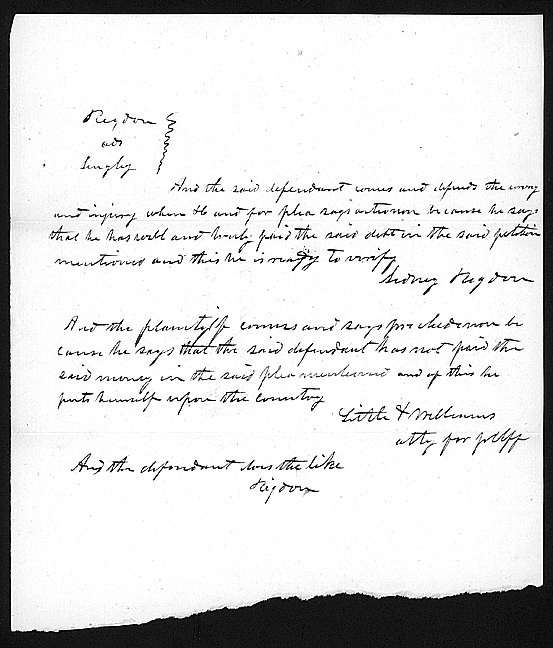 Rigdon
ads
And the said defendant comes and defends the wrong
and injury when &c and for plea says actionon because he says
that he has well and truly paid the said debt in the said petition
mentioned and this he is ready to verify
Sidney Rigdon
And the plaintiff comes and says precludenon be
cause he says that the said defendant has not paid the
said money in the said plea mentioned and of this he
puts himself upon the country
Little & Williams
atty for pltff
And the defendant does the like
Rigdon